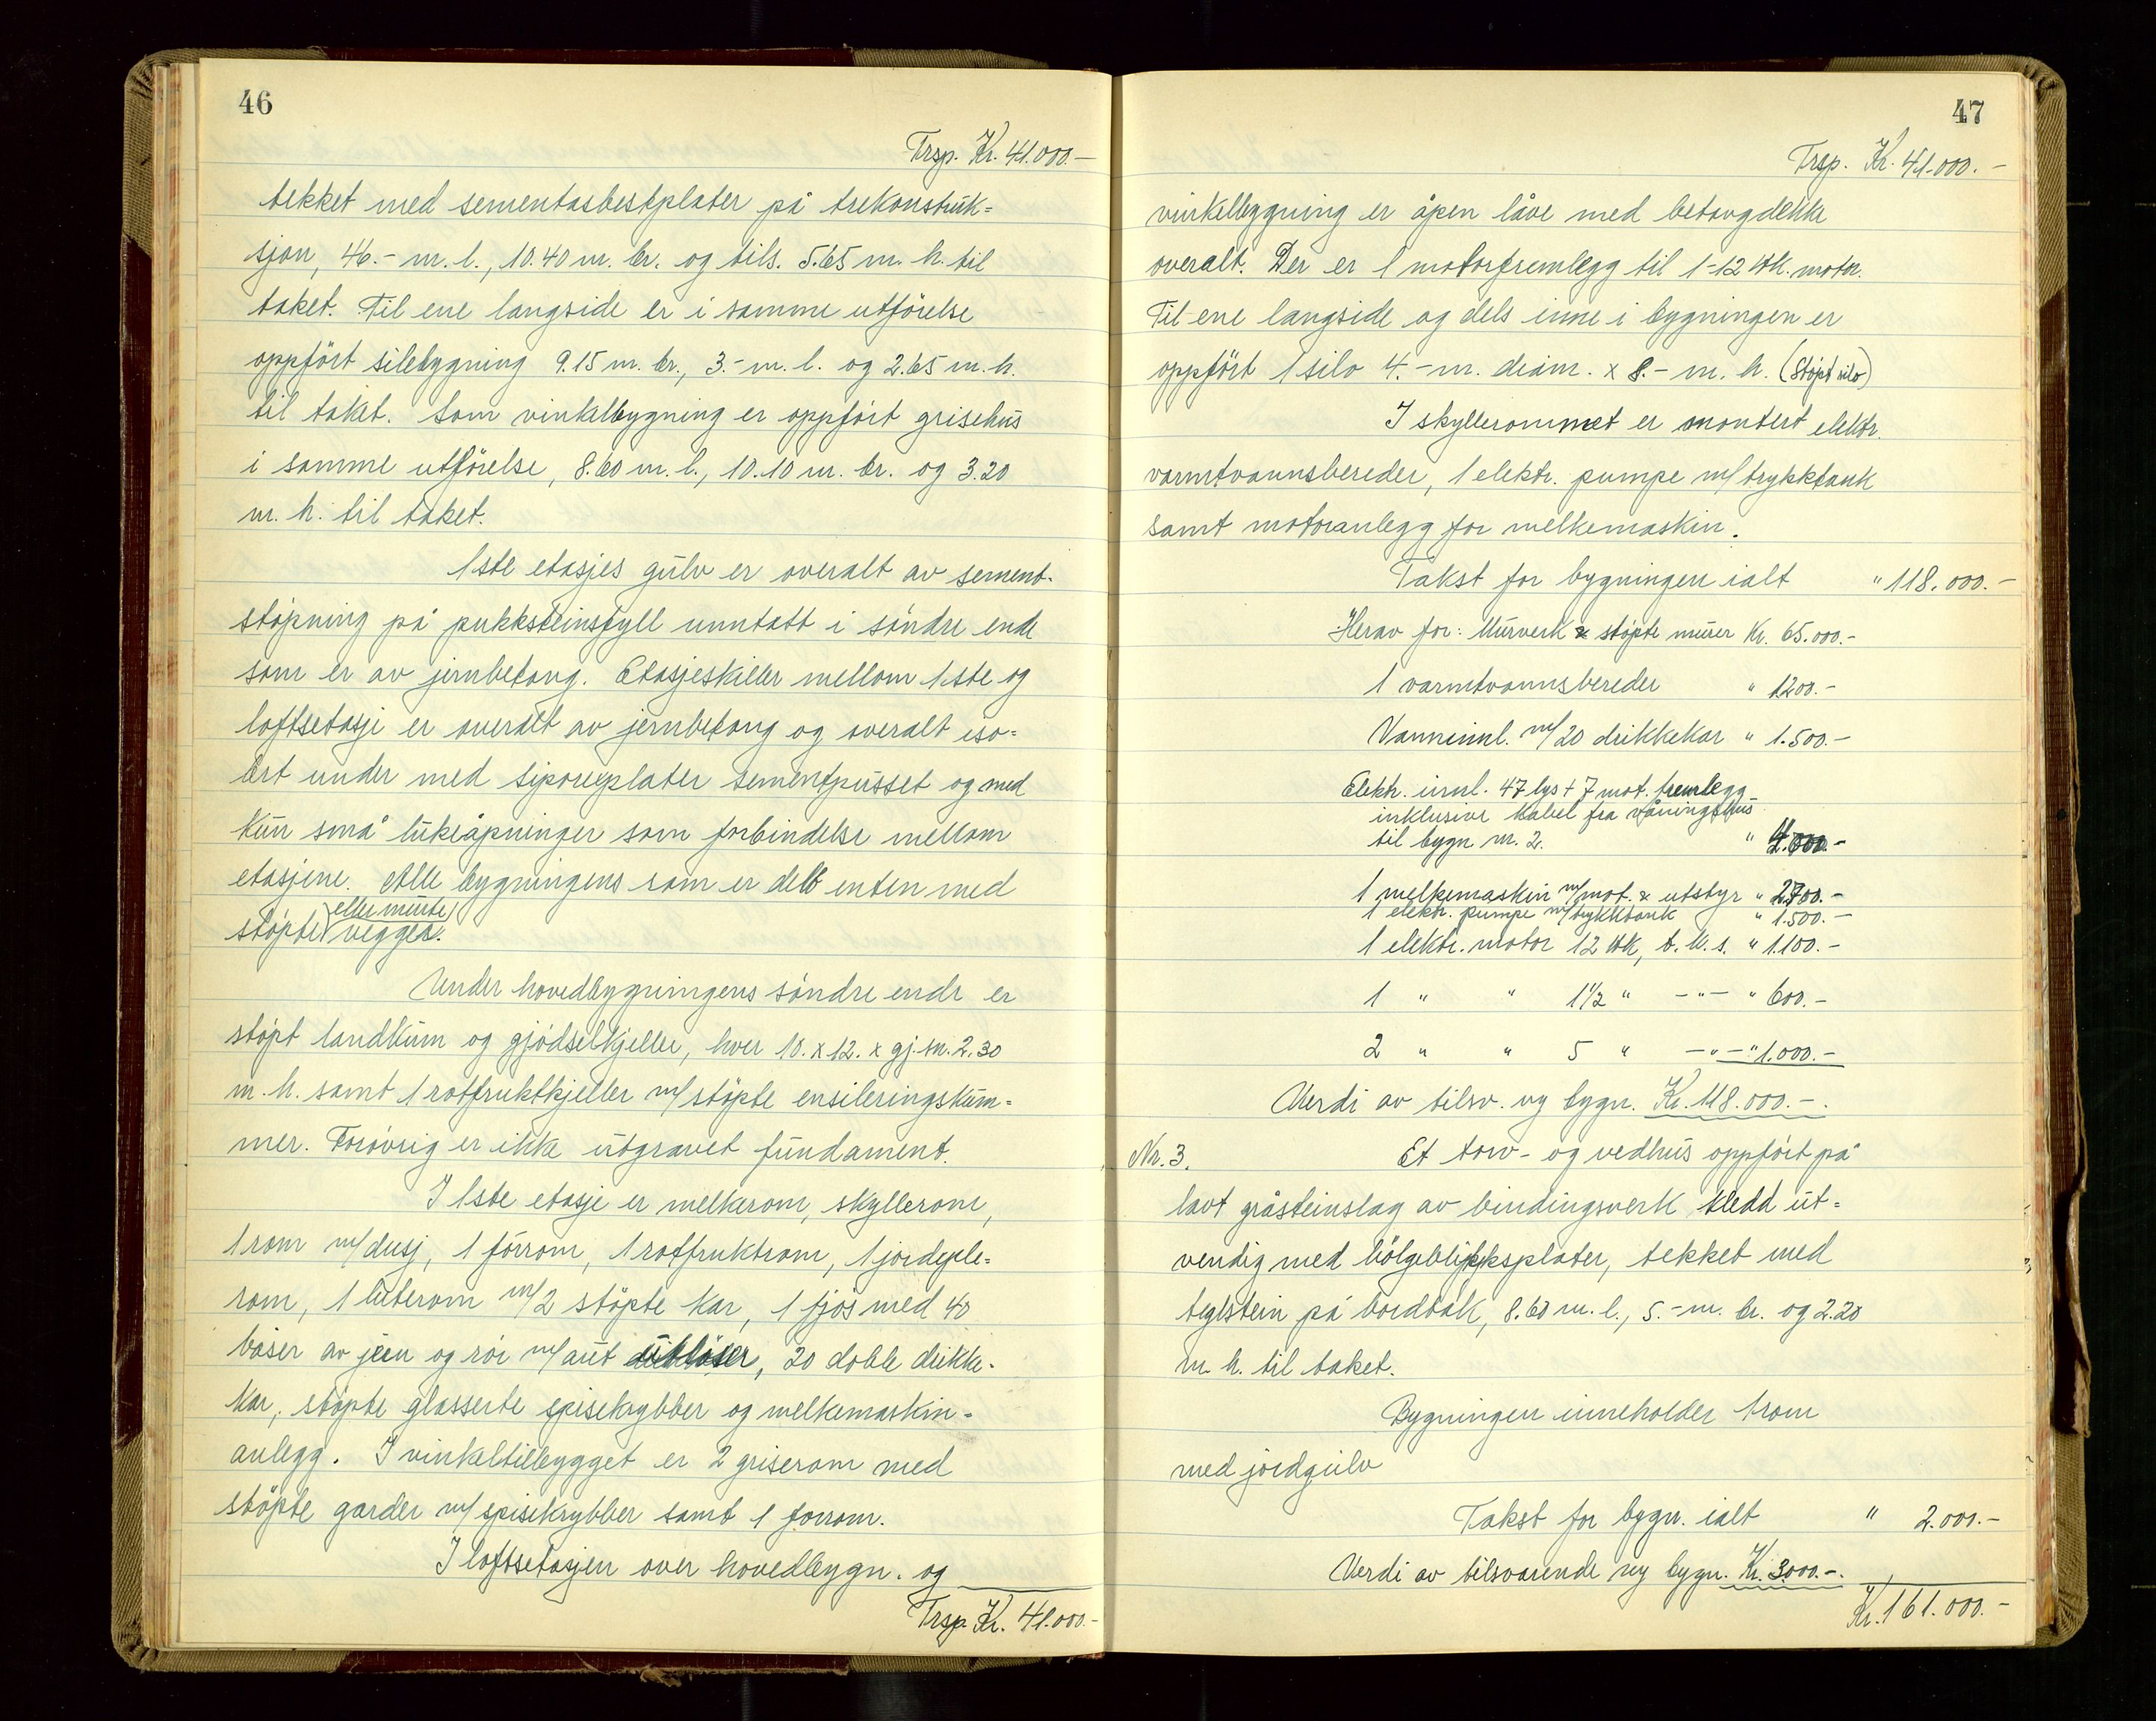 46
Trsp. Kr. 41.000.—
tekket med sementasbestplater på trekonstruk=
sjon, 46.- m. l., 10.40 m. br. og tils. 5.65 m. h. til
taket. Til ene langside er i samme utförelse
oppfört silobygning 9.15 m. br., 3.- m. l. og 2.65 m. h.
til taket. Som vinkelbygning er oppfört grisehus
i samme utförelse, 8.60 m. l., 10.10 m. br. og 3.20
m. h. til taket.
1ste etasjes gulv er overalt av sement-
stöpning på pukksteinsfyll unntatt i söndre ende
som er av jernbetong. Etasjeskiller mellom 1ste og
loftsetasje er overalt av jernbetong og overalt iso=
lert under med siporexplater sementpusset og med
kun små lukeåpninger som forbindelse mellom
etasjene. Alle bygningens rom er delt enten med
eller murte
stöpte vegger.
Under hovedbygningens söndre ende er
stöpt landkum og gjödselkjeller, hver 10. x 12. x gj.sn. 2.30
m. h. samt 1 rotfruktkjeller m/ stöpte ensileringskum=
mer. Forövrig er ikke utgravet fundament.
I 1ste etasje er melkerom, skyllerom,
1 rom m/ dusj, 1 fórrom, 1 rotfruktrom, 1 jordeple=
rom, 1 luterom m/ 2 stöpte kar, 1 fjös med 40
båser av jern og rör m/ aut utlöser, 20 doble drikke-
kar, stöpte glasserte spisekrybber og melkemaskin=
anlegg. I vinkeltilbygget er 2 griserom med
stöpte garder m/ spisekrybber samt 1 forrom.
I loftsetasjen over hovedbygn. og
Trsp. Kr. 41.000.-
47
Trsp. Kr. 41.000.-
vinkelbygning er åpen låve med betongdekke
overalt. Der er 1 motorfremlegg til 1-12 Hk. motor.
Til ene langside og dels inne i bygningen er
oppfört 1 silo 4.- m. diam. x 8.- m. h. (Stöpt silo)
I skyllerommet er montert elektr.
varmtvannsbereder, 1 elektr. pumpe m/ trykktank
samt motoranlegg for melkemaskin.
Takst for bygningen ialt " 118.000.-
Herav for: Murverk & stöpte murer Kr. 65.000.-
1 varmtvannsbereder " 1200.-
Vanninnl. m/ 20 drikkekar " 1.500.-
Elektr. innl. 47 lys + 7 mot. fremlegg
inklusive kabel fra våningshus
til bygn nr. 2. " 4.000.-
1 melkemaskin m/ mot. & utstyr " 2700.-
1 elektr. pumpe m/ trykktank " 1.500.-
1 elektr. motor 12 Hk, t. k. s. " 1.100.-
1 " " 1 1/2 " -"- " 600.-
2 " " 5 " -"- " 1.000.-
Verdi av tilsv. ny bygn. Kr. 118.000.-.
Nr. 3. Et torv- og vedhus oppfört på
lavt gråsteinslag av bindingsverk kledd ut=
vendig med bölgeblikksplater, tekket med
teglstein på bordtak, 8.60 m. l., 5.- m. br. og 2.20
m. h. til taket.
Bygningen inneholder 1 rom
med jordgulv
Takst for bygn. ialt " 2.000.-
Verdi av tilsvarende ny bygn. Kr. 3000.-.
Kr. 161.000.-